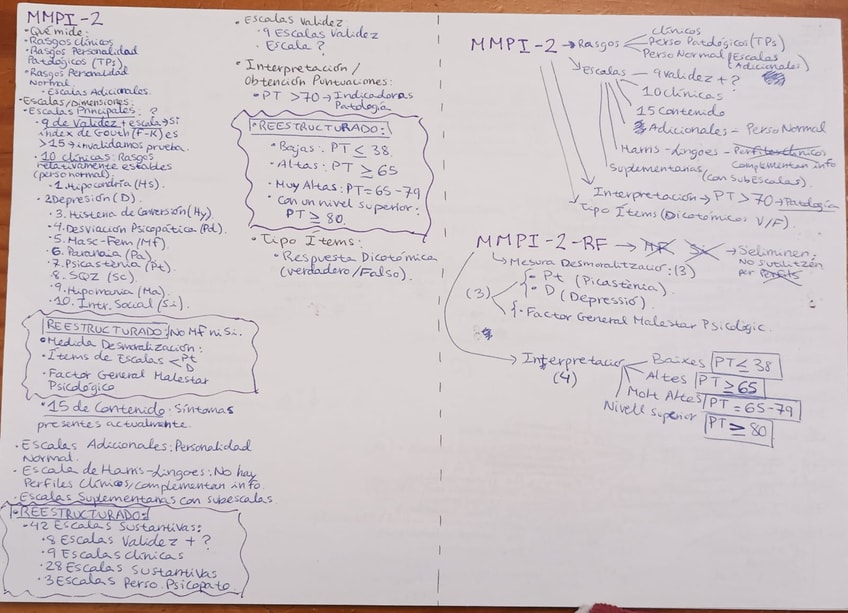 MMPI-2
• Qué mide:
• Rasgos clínicos
• Rasgos Personalidad
Patológicos (TPs)
• Rasgos Personalidad
Normal.
• Escalas Adicionales.
• Escalas/Dimensiones:
• Escalas Principales: ?
• 9 de Validez + escala → Si
índex de Gouth (F-K) es
> 15 → invalidamos prueba.
• 10 clínicas: Rasgos
relativamente estables
(perso normal):
• 1. Hipocondría (Hs).
• 2 Depresión (D).
• 3. Histeria de Conversión (Hy)
• 4. Desviación Psicopática (Pd)
• 5. Masc-Fem (Mf)
• 6. Paranoia (Pa)
• 7. Psicastenia (Pt)
• 8. SQZ (Sc)
• 9. Hipomanía (Ma)
• 10. Intr. Social (Si)
REESTRUCTURADO: No Mf ni Si.
• Medida Desmoralización:
• Ítems de Escalas < Pt
D
• Factor General Malestar
Psicológico
• 15 de Contenido: Síntomas
presentes actualmente.
• Escalas Adicionales: Personalidad
Normal.
• Escala de Harris-Lingoes: No hay
Perfiles Clínicos, complementan info.
• Escalas Suplementarias con subescalas.
• REESTRUCTURADO:
• 42 Escalas Sustantivas:
• 8 Escalas Validez + ?
• 9 Escalas clínicas
• 28 Escalas Sustantivas
• 3 Escalas Perso. Psicopato.
• Escalas Validez
• 9 Escalas Validez
• Escala ?
• Interpretación /
Obtención Puntuaciones:
• PT > 70 → Indicadoras
Patología
• REESTRUCTURADO:
• Bajas: PT ≤ 38
• Altas: PT ≥ 65
• Muy Altas: PT = 65 - 79
• Con un nivel superior:
PT ≥ 80.
• Tipo Ítems:
• Respuesta Dicotómica
(verdadero/Falso).
MMPI-2 → Rasgos
clínicos
Perso Patológicos (TPs)
Perso Normal (Escalas
Adicionales)
Escalas — 9 validez + ?
10 clínicas
15 contenido
Adicionales - Perso Normal
Harris-Lingoes - Perfiles Clínicos
Complementan info
Suplementarias (con Subescalas).
Interpretación → PT > 70 → Patología
Tipo Ítems (Dicotómicos V/F).
MMPI-2-RF → MF Si → S'eliminen:
No s'utilitzen
per Perfils
Mesura Desmoralització: (3)
• Pt (Picastènia).
(3)
• D (Depressió).
• Factor General Malestar Psicològic.
8
Interpretació
(4)
Baixes PT ≤ 38
Altes PT ≥ 65
Molt Altes PT = 65 - 79
Nivell superior PT ≥ 80